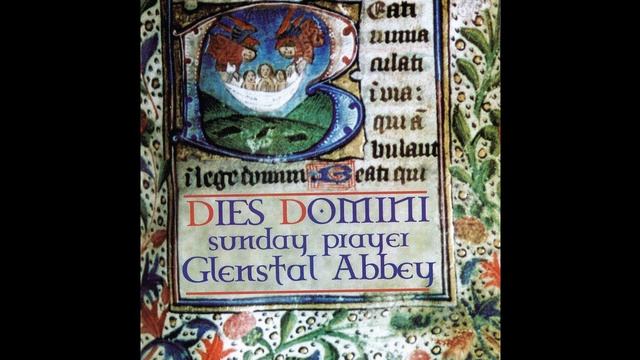 Beati
immia
culati
i uia:
qui ā
bulaut
i lege domini Beati qui
DIES DOMINI
sunday prayer
Glenstal Abbey